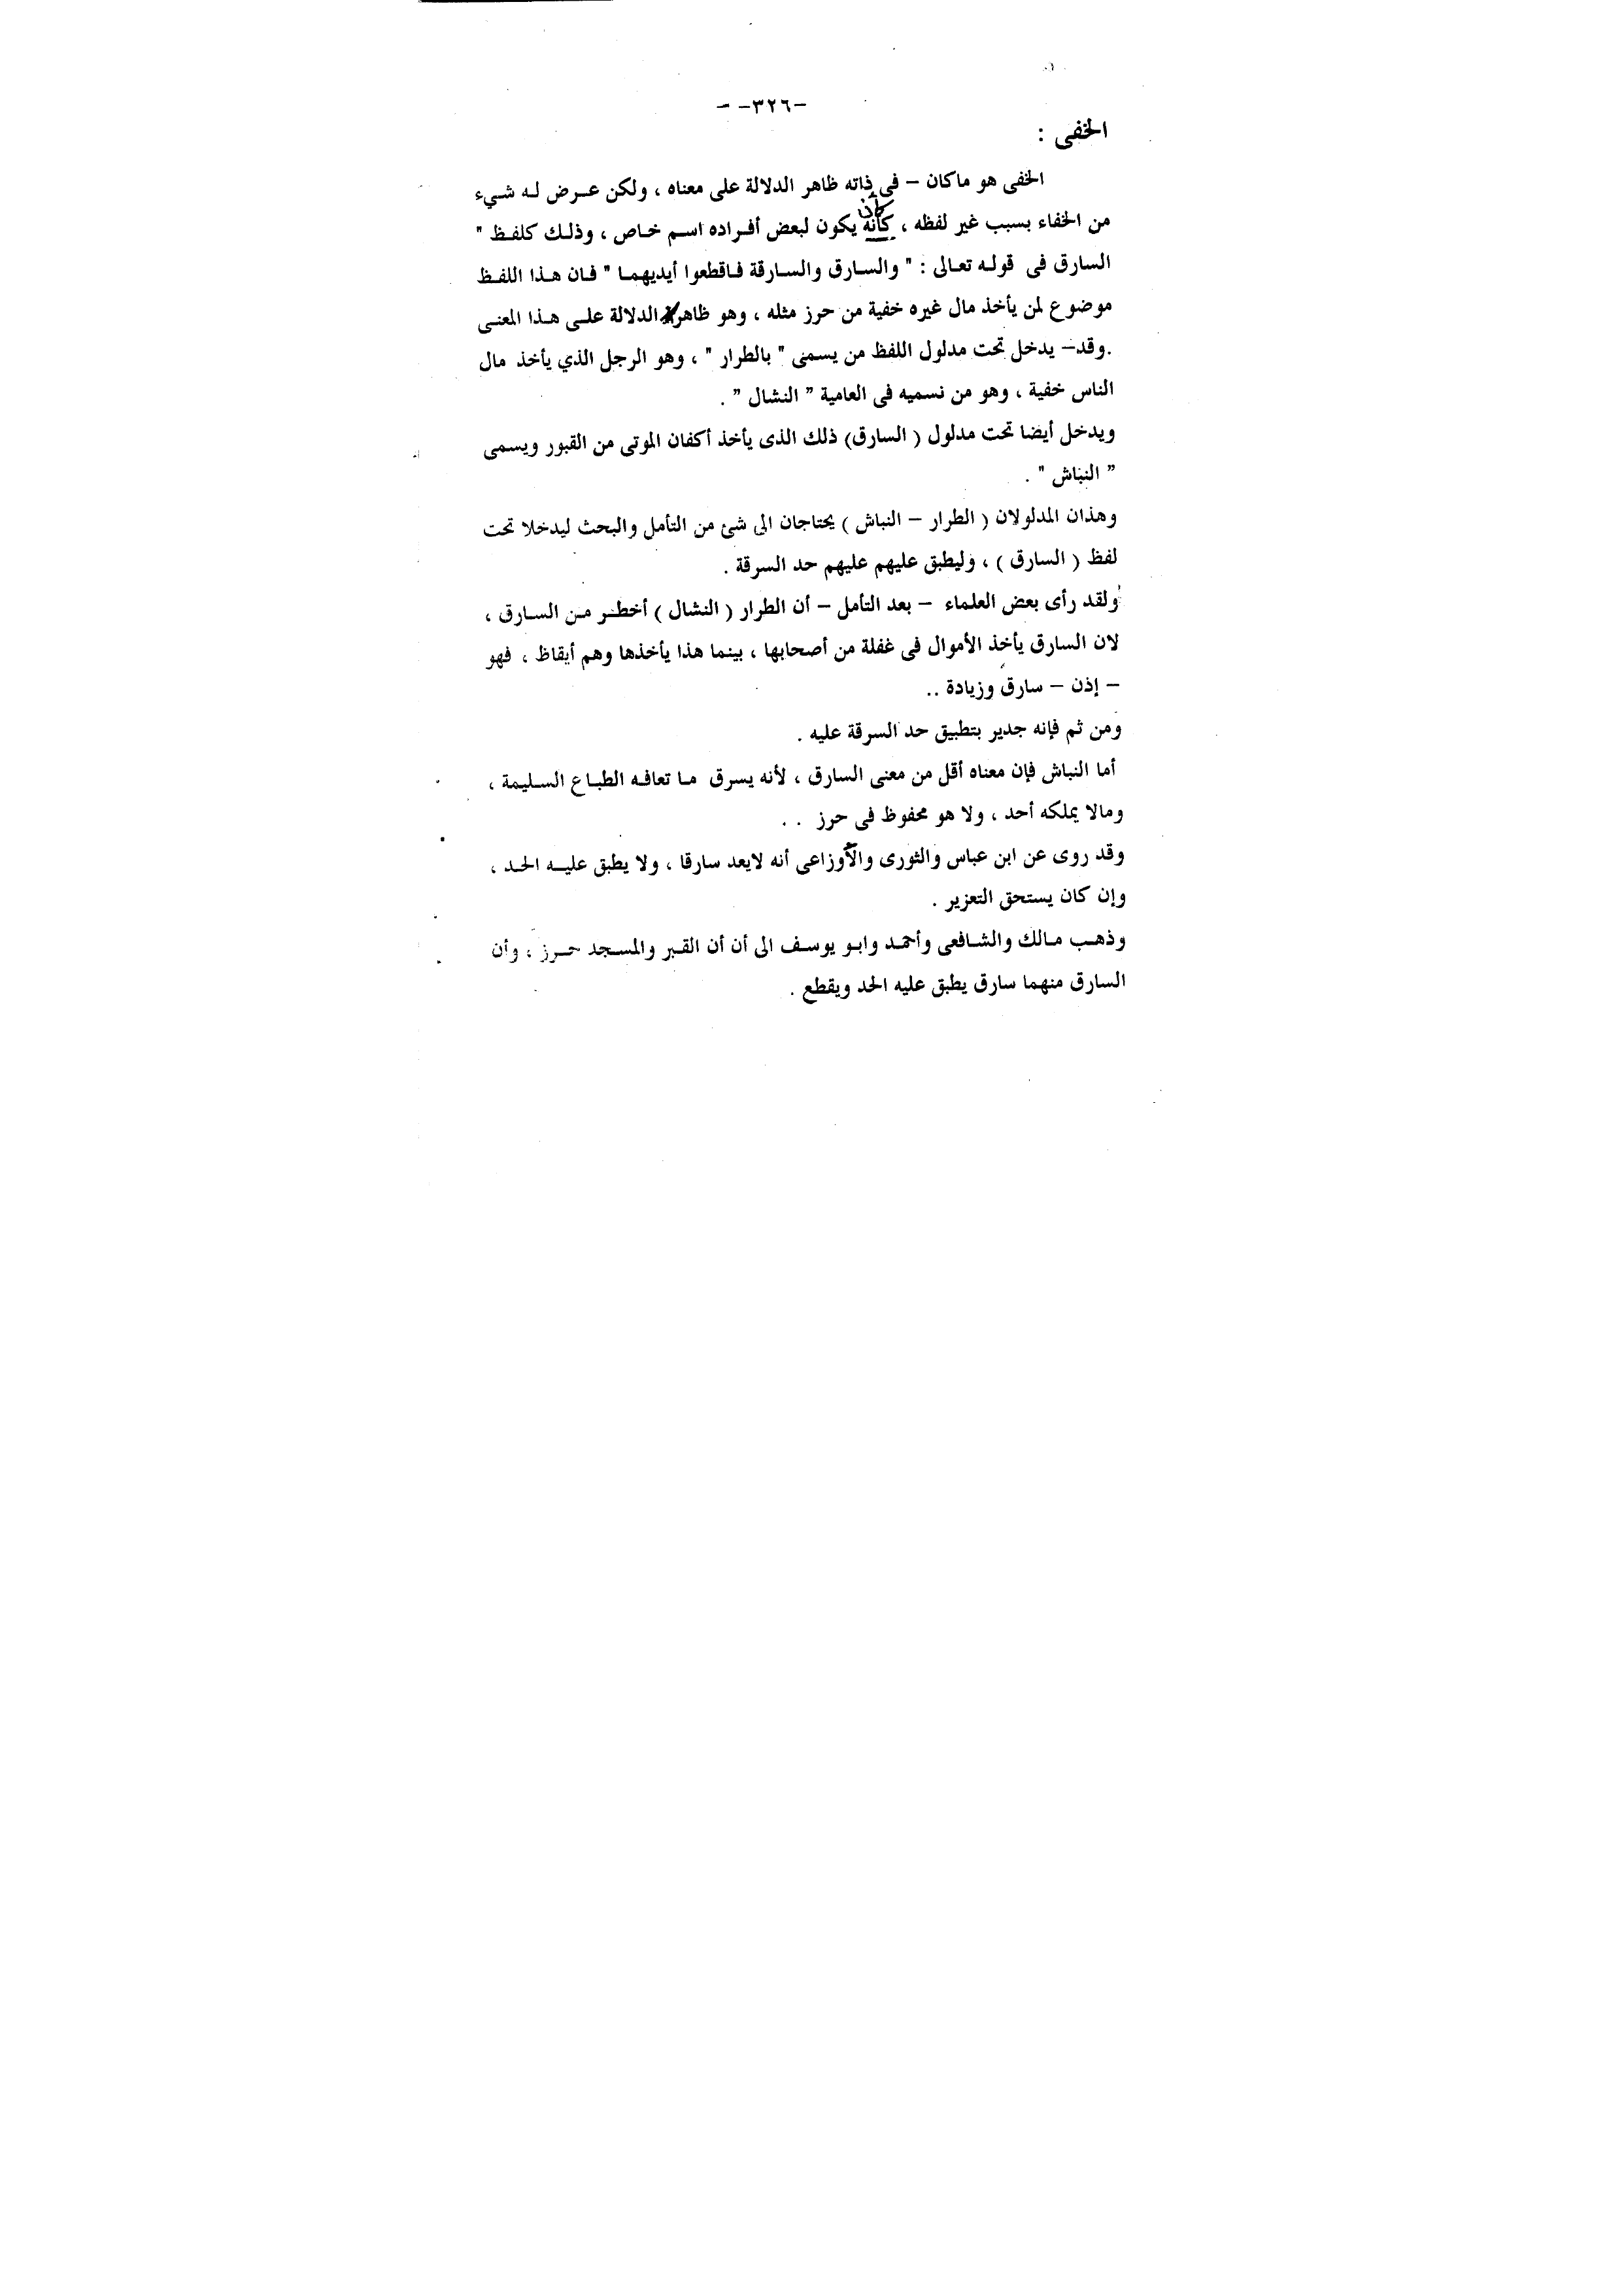 -٣٢٦- -
الخفى :
الخفى هو ماكان – فى ذاته ظاهر الدلالة على معناه ، ولكن عرض له شيء
من الخفاء بسبب غير لفظه ، كأنه يكون لبعض أفراده اسم خاص ، وذلك كلفظ "
السارق فى قوله تعالى : " والسارق والسارقة فاقطعوا أيديهما " فان هذا اللفظ
موضوع لمن يأخذ مال غيره خفية من حرز مثله ، وهو ظاهر الدلالة على هذا المعنى
.وقد– يدخل تحت مدلول اللفظ من يسمى " بالطرار " ، وهو الرجل الذي يأخذ مال
الناس خفية ، وهو من نسميه فى العامية " النشال " .
ويدخل أيضا تحت مدلول ( السارق) ذلك الذى يأخذ أكفان الموتى من القبور ويسمى
" النباش " .
وهذان المدلولان ( الطرار – النباش ) يحتاجان الى شئ من التأمل والبحث ليدخلا تحت
لفظ ( السارق ) ، وليطبق عليهم عليهم حد السرقة .
ولقد رأى بعض العلماء – بعد التأمل – أن الطرار ( النشال ) أخطر من السارق ،
لان السارق يأخذ الأموال فى غفلة من أصحابها ، بينما هذا يأخذها وهم أيقاظ ، فهو
– إذن – سارق وزيادة ..
ومن ثم فإنه جدير بتطبيق حد السرقة عليه .
أما النباش فإن معناه أقل من معنى السارق ، لأنه يسرق ما تعافه الطباع السليمة ،
ومالا يملكه أحد ، ولا هو محفوظ فى حرز . .
وقد روى عن ابن عباس والثورى والأوزاعى أنه لايعد سارقا ، ولا يطبق عليه الحد ،
وإن كان يستحق التعزير .
وذهب مالك والشافعى وأحمد وابو يوسف الى أن أن القبر والمسجد حرز ، وأن
السارق منهما سارق يطبق عليه الحد ويقطع .